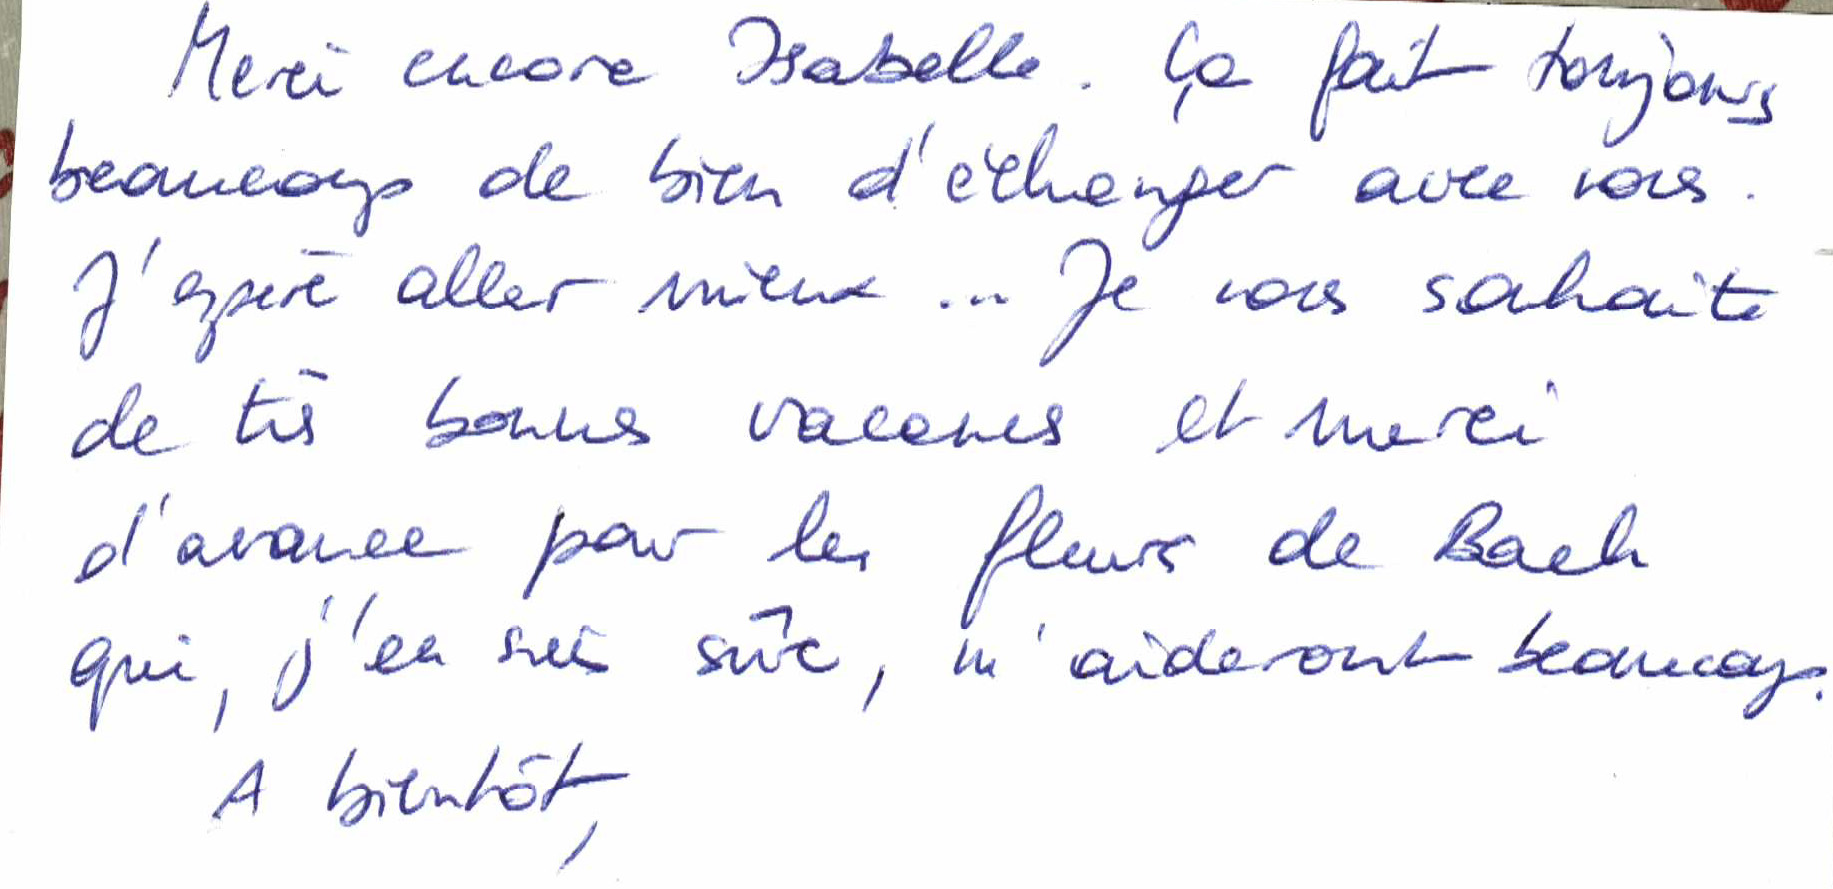 Merci encore Isabelle. Ça fait toujours
beaucoup de bien d'échanger avec vous.
J'espère aller mieux... Je vous souhaite
de très bonnes vacances et merci
d'avance pour les fleurs de Bach
qui, j'en suis sûre, m'aideront beaucoup.
A bientôt,